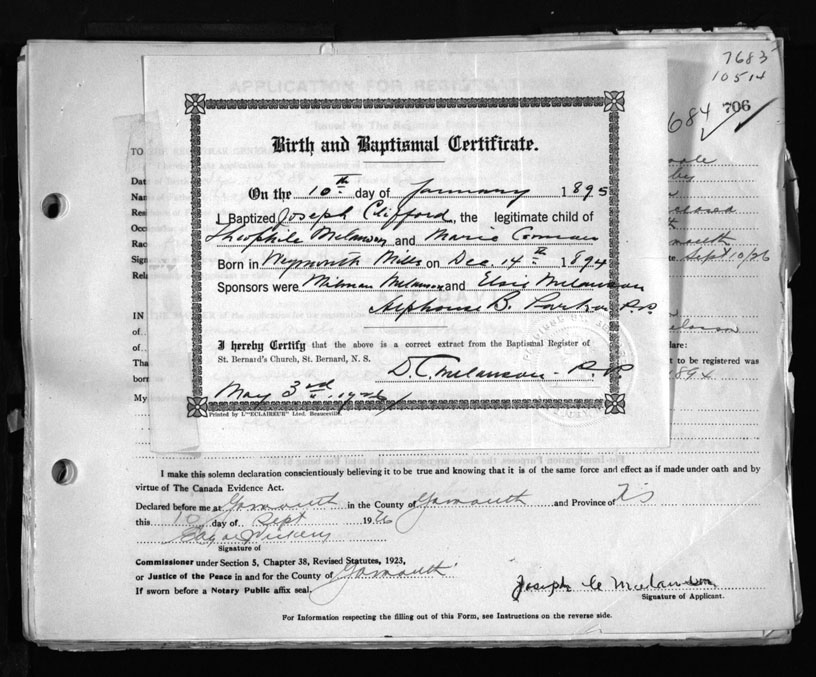 7683
10514
684 706
APPLICATION FOR REGISTRATION
Birth and Baptismal Certificate.
TO
On the 10th day of January 1895
I Baptized Joseph Clifford, the legitimate child of
Theophile Melanson and Marie Comeau
Born in Weymouth Mills on Dec. 14th 1894
Sponsors were Melanson and Elsie Melanson
Alphonse B. Parker P.P.
I hereby Certify that the above is a correct extract from the Baptismal Register of
St. Bernard's Church, St. Bernard, N. S.
D. C. Melanson P.P.
May 3rd 1926
Printed by L'"ECLAIREUR" Lted. Beauceville.
Sept 10/26
IN
of
of
Tha
born
My
lare:
t to be registered was
1894
I make this solemn declaration conscientiously believing it to be true and knowing that it is of the same force and effect as if made under oath and by
virtue of The Canada Evidence Act.
Declared before me at Yarmouth in the County of Yarmouth and Province of N S
this 10 day of Sept 1926
Signature of
Commissioner under Section 5, Chapter 38, Revised Statutes, 1923,
or Justice of the Peace in and for the County of Yarmouth
If sworn before a Notary Public affix seal.
Joseph C Melanson
Signature of Applicant.
For Information respecting the filling out of this Form, see Instructions on the reverse side.